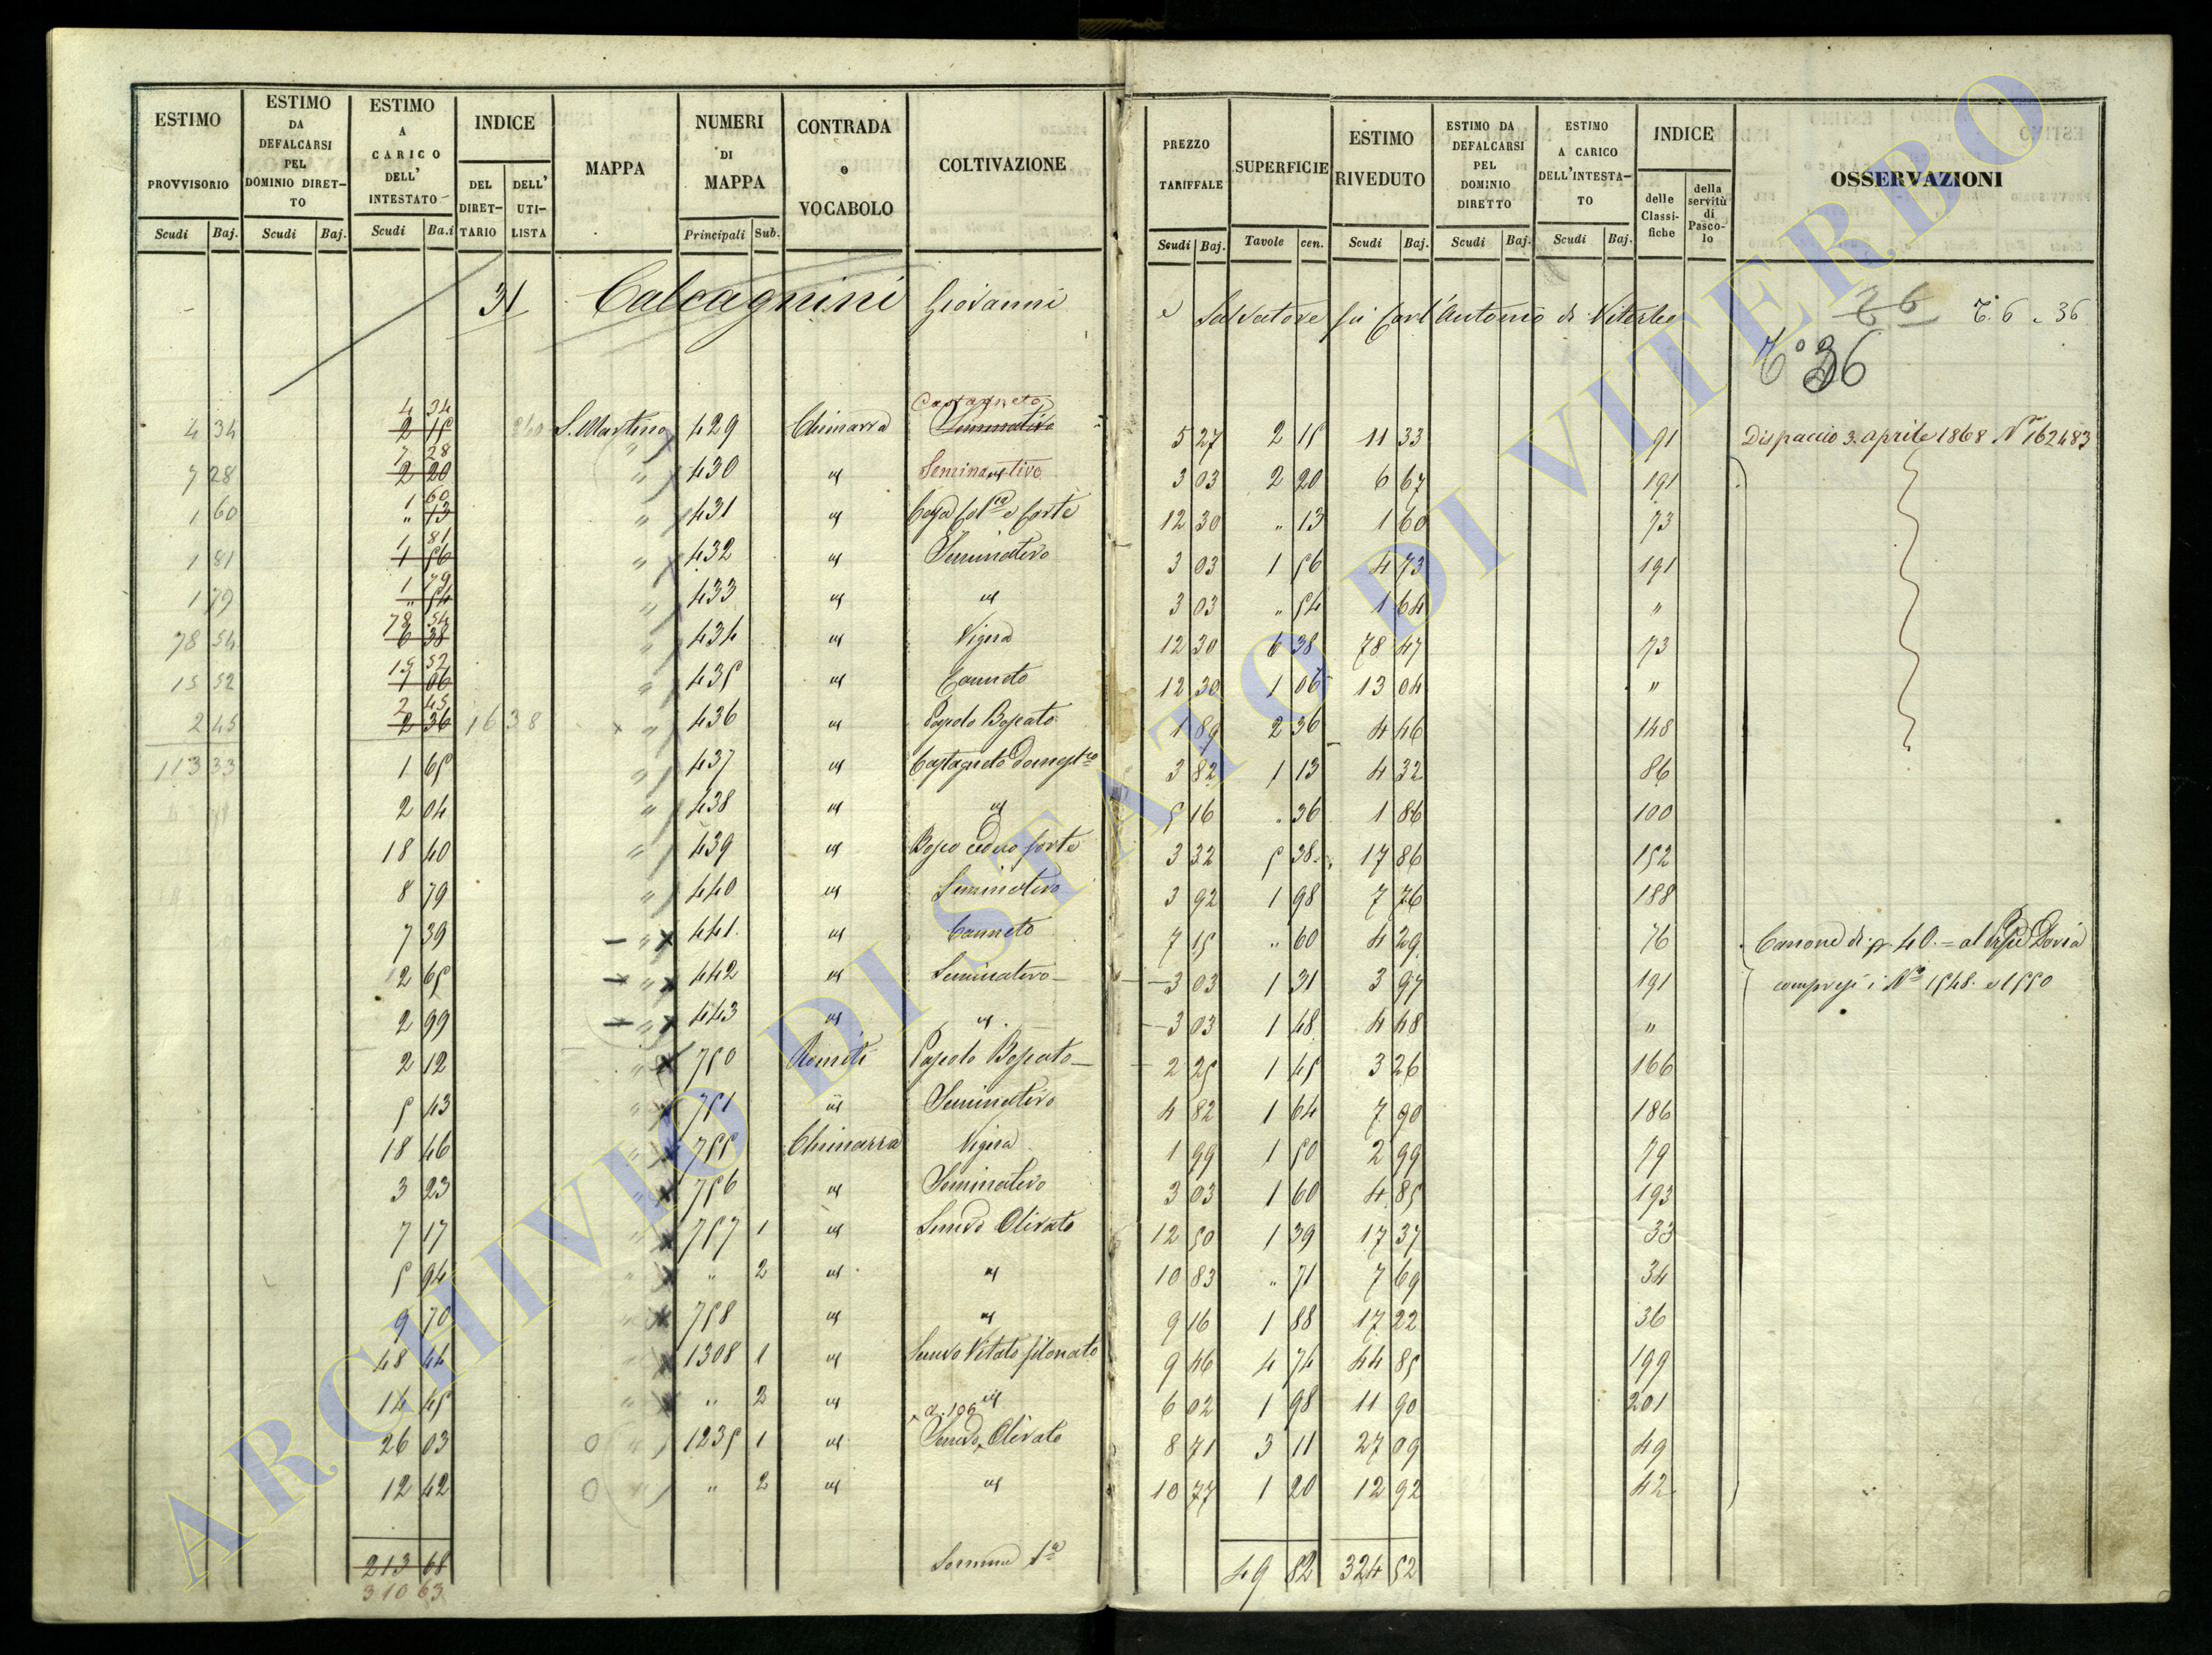 ESTIMO PROVVISORIO Scudi Baj.
ESTIMO DA DEFALCARSI PEL DOMINIO DIRETTO Scudi Baj.
ESTIMO A CARICO DELL' INTESTATO Scudi Ba.i
INDICE DEL DIRETTARIO DELL' UTILISTA
MAPPA
NUMERI DI MAPPA Principali Sub.
CONTRADA o VOCABOLO
COLTIVAZIONE
PREZZO TARIFFALE Scudi Baj.
SUPERFICIE Tavole cen.
ESTIMO RIVEDUTO Scudi Baj.
ESTIMO DA DEFALCARSI PEL DOMINIO DIRETTO Scudi Baj.
ESTIMO A CARICO DELL'INTESTATO Scudi Baj.
INDICE delle Classifiche della servitù di Pascolo
OSSERVAZIONI
31 Calcagnini Giovanni e Salvatore fu Carl'Antonio di Viterbo 26 T. 6 - 36
T° 36
4 34 4 34 2 15 260 S. Martino 429 Chimarra Castagneto Seminativo 5 27 2 15 11 33 91 Dispaccio 3 aprile 1868 N° 162483
7 28 7 28 2 20 " 430 id Seminativo 3 03 2 20 6 67 191
1 60 1 60 " 13 " 431 id Casa Col.ca e Corte 12 30 " 13 1 60 73
1 81 1 81 1 56 " 432 id Seminativo 3 03 1 56 4 73 191
1 79 1 79 " 54 " 433 id id 3 03 " 54 1 64 "
78 54 78 54 6 38 " 434 id Vigna 12 30 6 38 78 47 73
15 52 15 52 1 06 " 435 id Canneto 12 30 1 06 13 04 "
2 45 2 45 2 36 1638 " 436 id Pascolo Boscato 1 89 2 36 4 46 148
113 33 1 65 " 437 id Castagneto domest.co 3 82 1 13 4 32 86
2 04 " 438 id id 5 16 " 36 1 86 100
18 40 " 439 id Bosco ceduo forte 3 32 5 38 17 86 152
8 79 " 440 id Seminativo 3 92 1 98 7 76 188
7 39 " 441 id Canneto 7 15 " 60 4 29 76 Canone di 40 = al Doria
2 65 " 442 id Seminativo 3 03 1 31 3 97 191 compresi i N.ri 1548 e 1550
2 99 " 443 id id 3 03 1 48 4 48 "
2 12 " 750 Romiti Pascolo Boscato 2 25 1 45 3 26 166
5 43 " 751 id Seminativo 4 82 1 64 7 90 186
18 46 " 755 Chimarra Vigna 1 99 1 50 2 99 79
3 23 " 756 id Seminativo 3 03 1 60 4 85 193
7 17 " 757 1 id Semivo Olivato 12 50 1 39 17 37 33
5 94 " " 2 id id 10 83 " 71 7 69 34
9 70 " 758 id id 9 16 1 88 17 22 36
48 44 " 1308 1 id Semivo Vitato 9 46 4 74 44 85 199
14 45 " " 2 id id 6 02 1 98 11 90 201
a. 106
26 03 0 " 1235 1 id Semivo Olivato 8 71 3 11 27 09 49
12 42 0 " " 2 id id 10 77 1 20 12 92 42
213 68 Somma 1a 49 82 324 52
310 63
ARCHIVIO DI STATO DI VITERBO